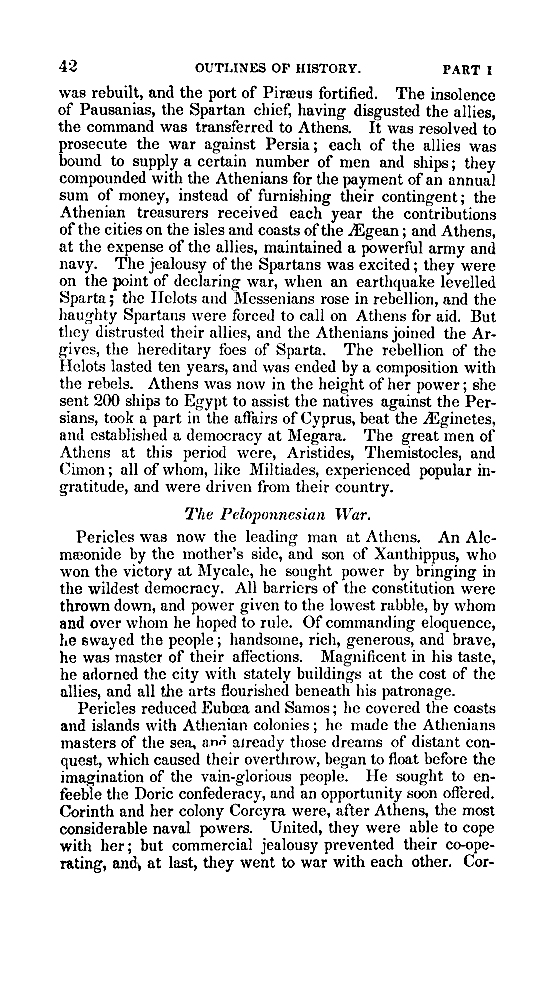 42 OUTLINES OF HISTORY. PART I
was rebuilt, and the port of Piræus fortified. The insolence
of Pausanias, the Spartan chief, having disgusted the allies,
the command was transferred to Athens. It was resolved to
prosecute the war against Persia; each of the allies was
bound to supply a certain number of men and ships; they
compounded with the Athenians for the payment of an annual
sum of money, instead of furnishing their contingent; the
Athenian treasurers received each year the contributions
of the cities on the isles and coasts of the Ægean; and Athens,
at the expense of the allies, maintained a powerful army and
navy. The jealousy of the Spartans was excited; they were
on the point of declaring war, when an earthquake levelled
Sparta; the Helots and Messenians rose in rebellion, and the
haughty Spartans were forced to call on Athens for aid. But
they distrusted their allies, and the Athenians joined the Ar-
gives, the hereditary foes of Sparta. The rebellion of the
Helots lasted ten years, and was ended by a composition with
the rebels. Athens was now in the height of her power; she
sent 200 ships to Egypt to assist the natives against the Per-
sians, took a part in the affairs of Cyprus, beat the Æginetes,
and established a democracy at Megara. The great men of
Athens at this period were, Aristides, Themistocles, and
Cimon; all of whom, like Miltiades, experienced popular in-
gratitude, and were driven from their country.
The Peloponnesian War.
Pericles was now the leading man at Athens. An Alc-
mæonide by the mother's side, and son of Xanthippus, who
won the victory at Mycale, he sought power by bringing in
the wildest democracy. All barriers of the constitution were
thrown down, and power given to the lowest rabble, by whom
and over whom he hoped to rule. Of commanding eloquence,
he swayed the people; handsome, rich, generous, and brave,
he was master of their affections. Magnificent in his taste,
he adorned the city with stately buildings at the cost of the
allies, and all the arts flourished beneath his patronage.
Pericles reduced Eubœa and Samos; he covered the coasts
and islands with Athenian colonies; he made the Athenians
masters of the sea, and already those dreams of distant con-
quest, which caused their overthrow, began to float before the
imagination of the vain-glorious people. He sought to en-
feeble the Doric confederacy, and an opportunity soon offered.
Corinth and her colony Corcyra were, after Athens, the most
considerable naval powers. United, they were able to cope
with her; but commercial jealousy prevented their co-ope-
rating, and, at last, they went to war with each other. Cor-